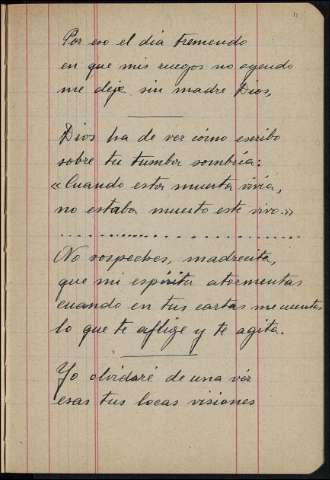 Por eso el día tremendo
en que mis ruegos no oyendo
me deje sin madre Dios,
Dios ha de ver cómo escribo
sobre tu tumba sombría:
«Cuando esta muerta vivía,
no estaba muerto este vivo.»
No sospeches, madrecita,
que mi espíritu atormentas
cuando en tus cartas me cuentas
lo que te aflige y te agita.
Yo olvidaré de una vez
esas tus locas visiones